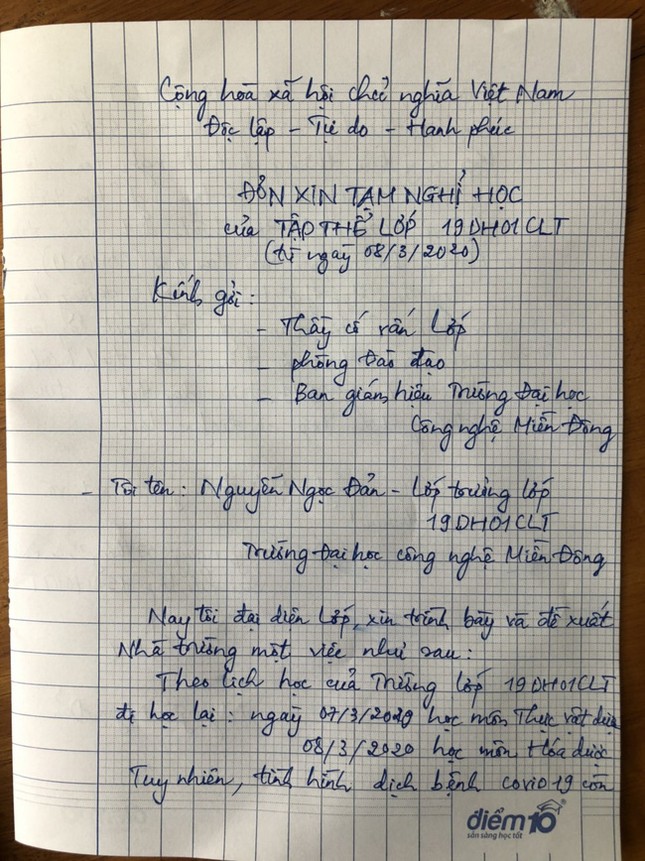 Cộng hoà xã hội chủ nghĩa Việt Nam
Độc lập - Tự do - Hạnh phúc
ĐƠN XIN TẠM NGHỈ HỌC
của TẬP THỂ LỚP 19DH01CLT
(từ ngày 08/3/2020)
Kính gởi:
- Thầy cố vấn Lớp
- phòng Đào đạo
- Ban giám hiệu Trường Đại học
Công nghệ Miền Đông
- Tôi tên: Nguyễn Ngọc Đản - Lớp trưởng lớp
19DH01CLT
Trường Đại học công nghệ Miền Đông
Nay tôi đại diện Lớp, xin trình bày và đề xuất
Nhà trường một việc như sau:
Theo lịch học của Trường lớp 19DH01CLT
đi học lại: ngày 07/3/2020 học môn Thực vật dược
08/3/2020 học môn Hóa dược
Tuy nhiên, tình hình dịch bệnh covid 19 còn
điểm 10
sẵn sàng học tốt